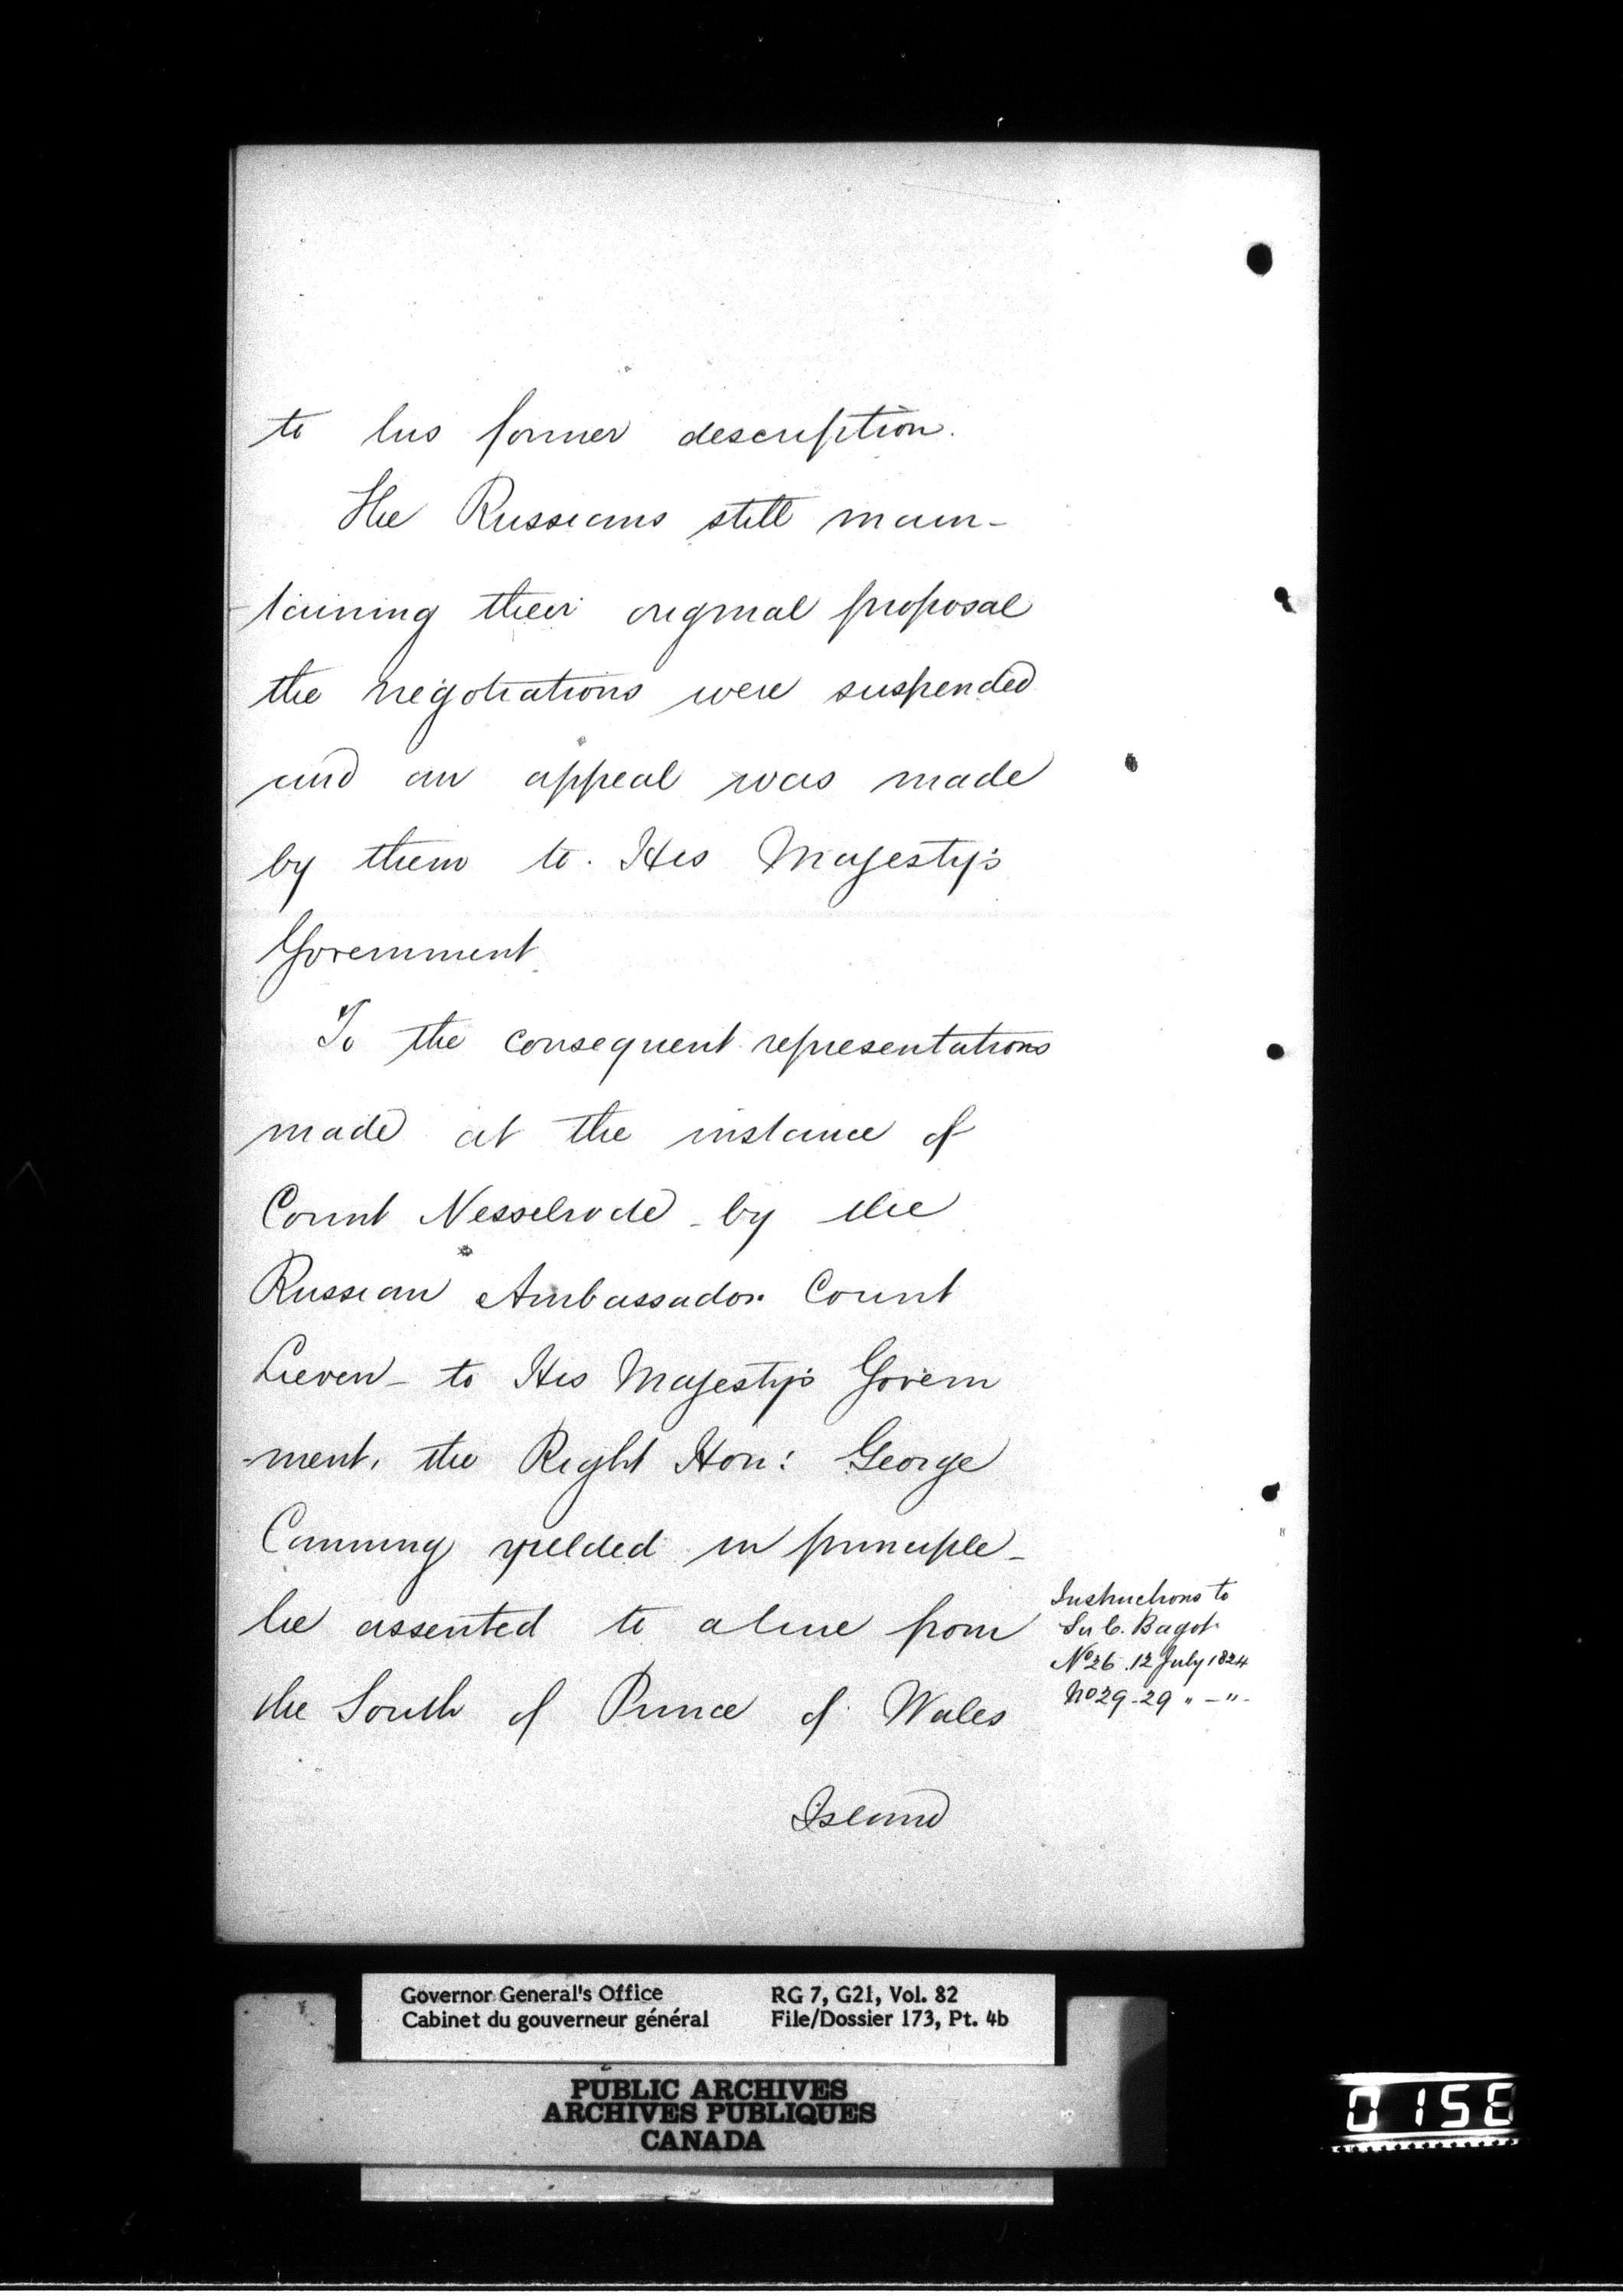 to his former description.
The Russians still main-
-taining their original proposal
the negotiations were suspended
and an appeal was made
by them to His Majesty's
Government
To the consequent representations
made at the instance of
Count Nesselrode - by the
Russian Ambassador Count
Lieven - to His Majesty's Govern
-ment, the Right Hon: George
Canning yielded in principle -
he assented to a line from
the South of Prince of Wales
Island
Instructions to
Sir C. Bagot
No 26. 12 July 1824
No 29 - 29 " - " -
Governor General's Office
Cabinet du gouverneur général
RG 7, G21, Vol. 82
File/Dossier 173, Pt. 4b
PUBLIC ARCHIVES
ARCHIVES PUBLIQUES
CANADA